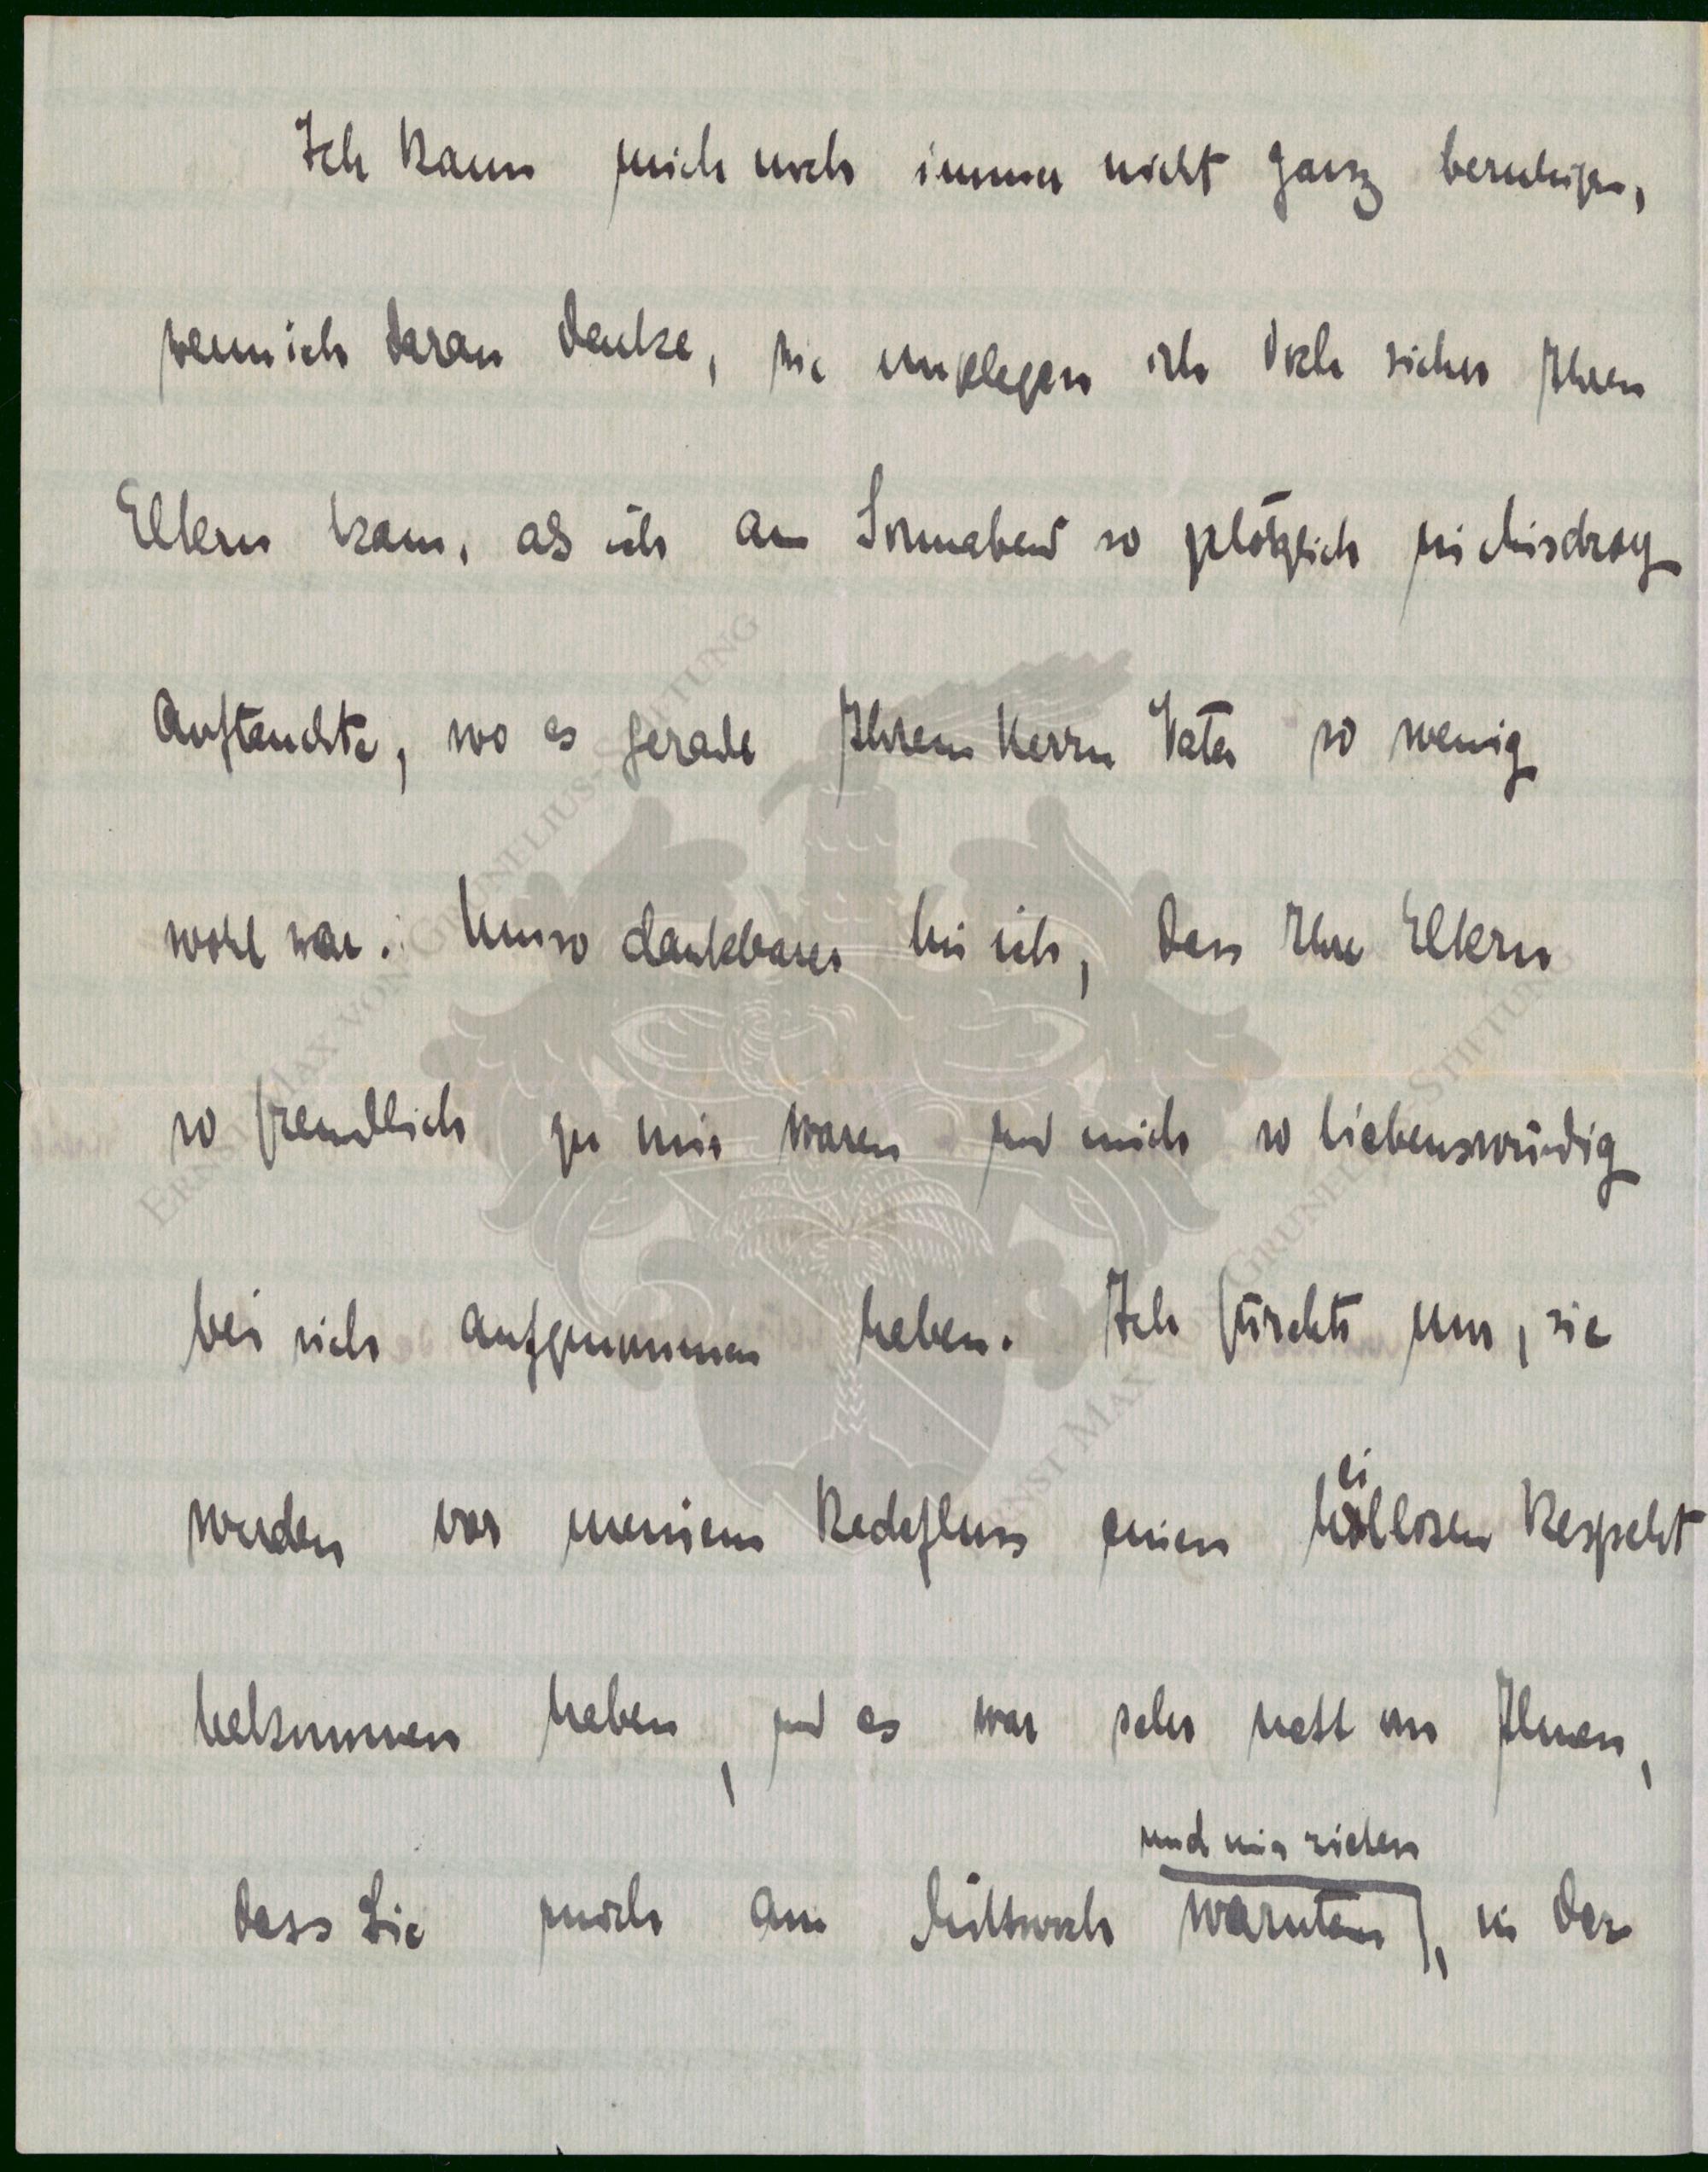 Ich kann mich noch immer nicht ganz beruhigen,
wenn ich daran denke, wie ungelegen ich doch sicher Ihren
Eltern kam, als ich am Sonnabend so plötzlich in
Auftauchte, wo es gerade Ihrem Herrn Vater so wenig
wohl war. Umso dankbarer bin ich, dass Ihre Eltern
so freundlich zu mir waren und mich so liebenswürdig
bei sich aufgenommen haben. Ich fürchte nur, sie
werden vor meinem Redefluss einen heillosen Respekt
bekommen haben, und es war sehr nett von Ihnen,
und mir rieten
dass Sie mich am Mittwoch warnten, in der
ERNST MAX VON GRUNELIUS-STIFTUNG
ERNST MAX VON GRUNELIUS-STIFTUNG